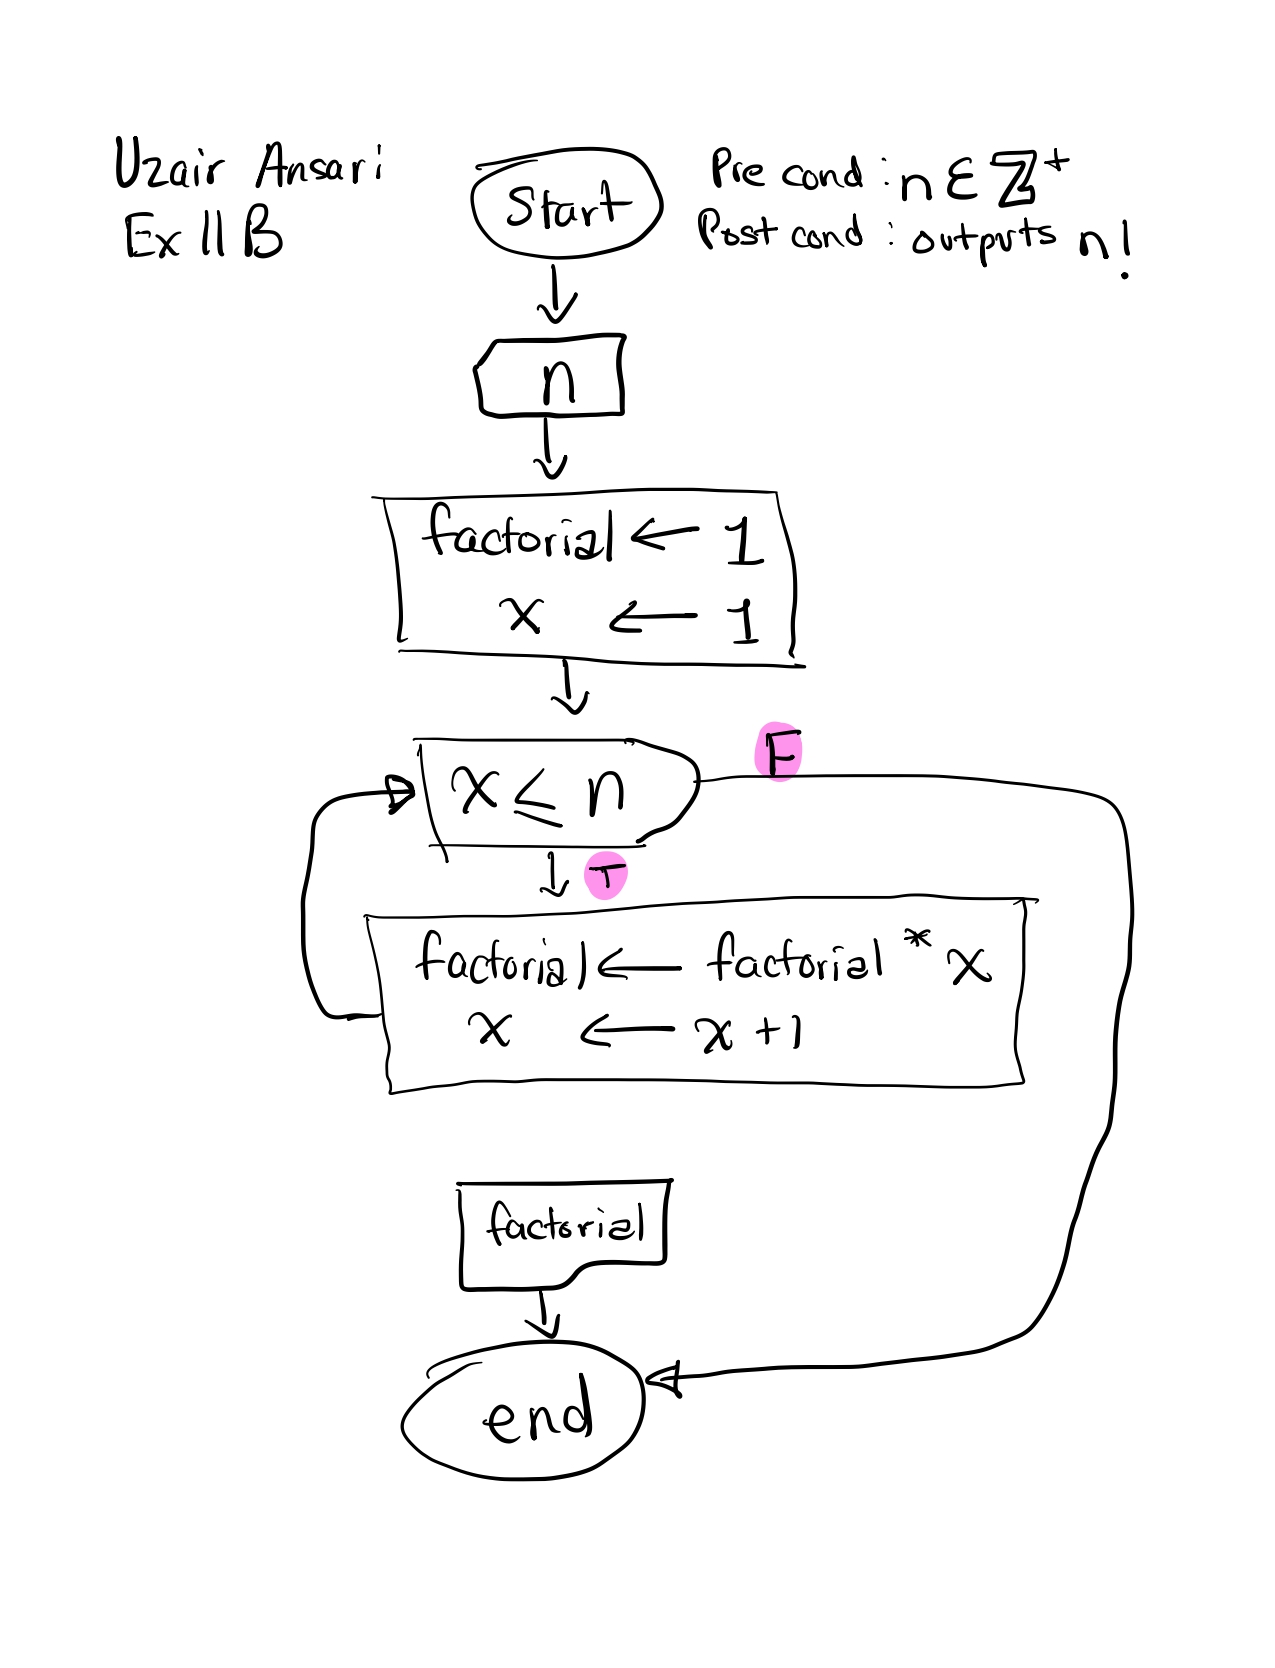 Uzair Ansari
Ex 11B
Start
Pre cond : n ∈ ℤ⁺
Post cond : outputs n!
n
factorial ← 1
x ← 1
x ≤ n
F
T
factorial ← factorial * x
x ← x + 1
factorial
end